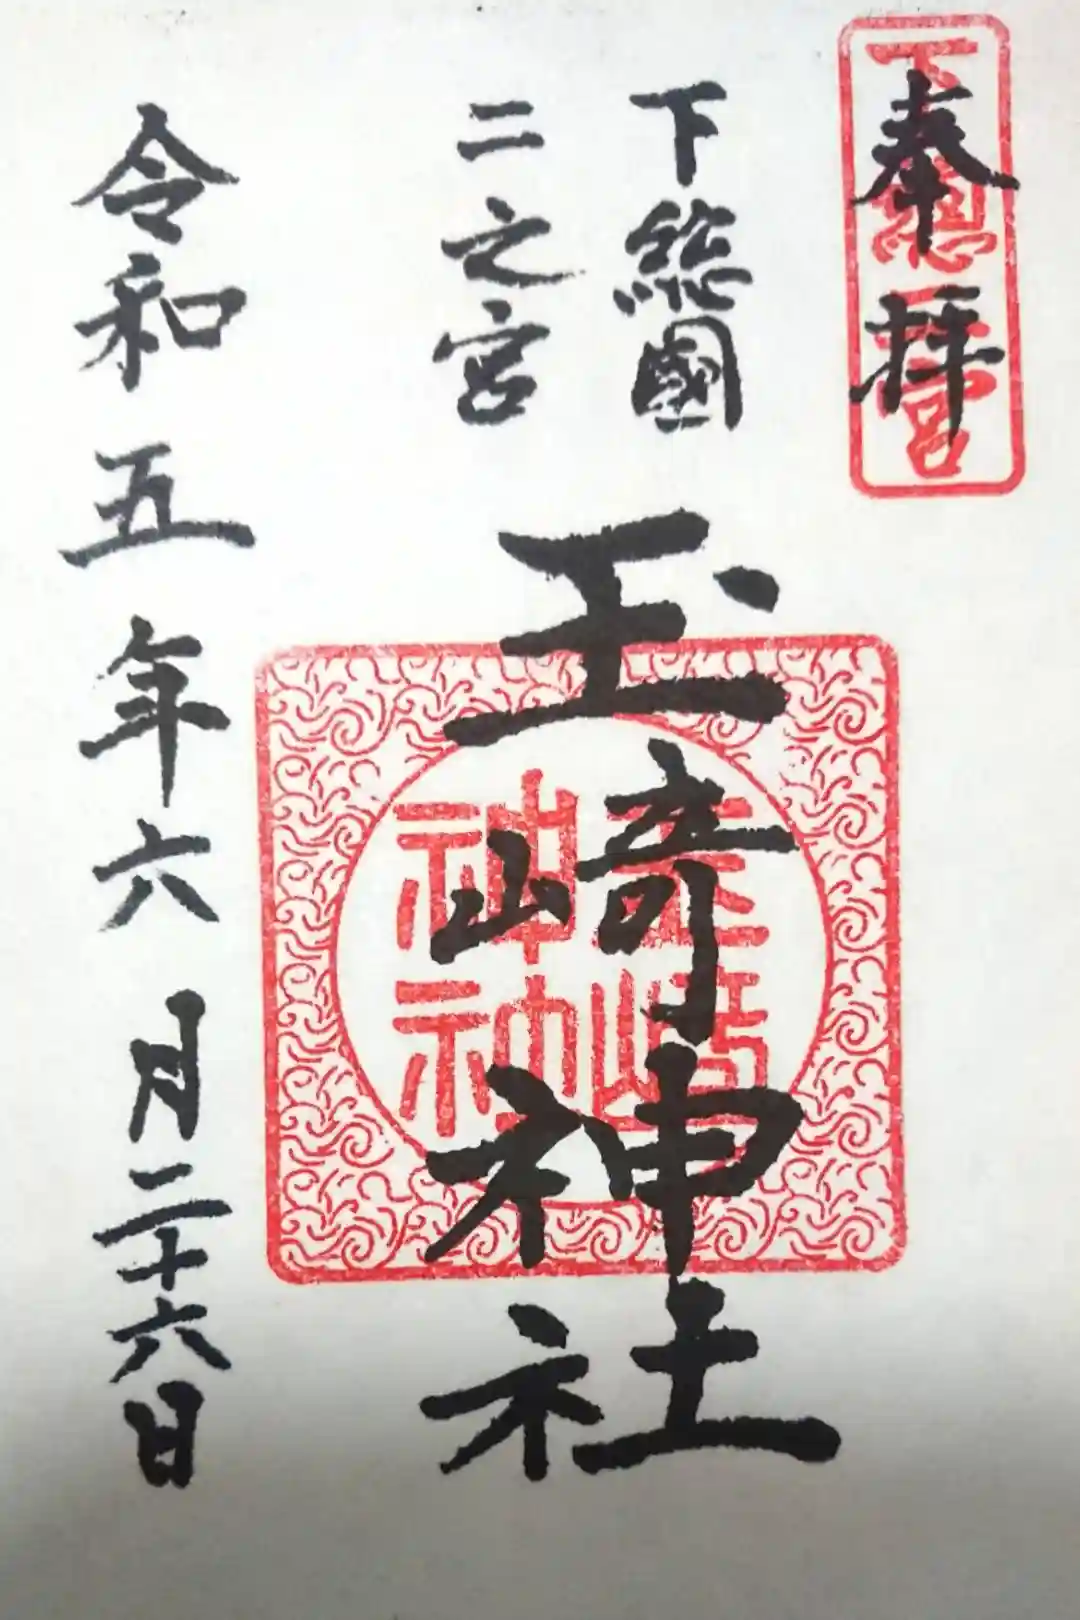 奉拝
下総二宮
下総國
二之宮
玉﨑神社
玉﨑神社
令和五年六月二十六日